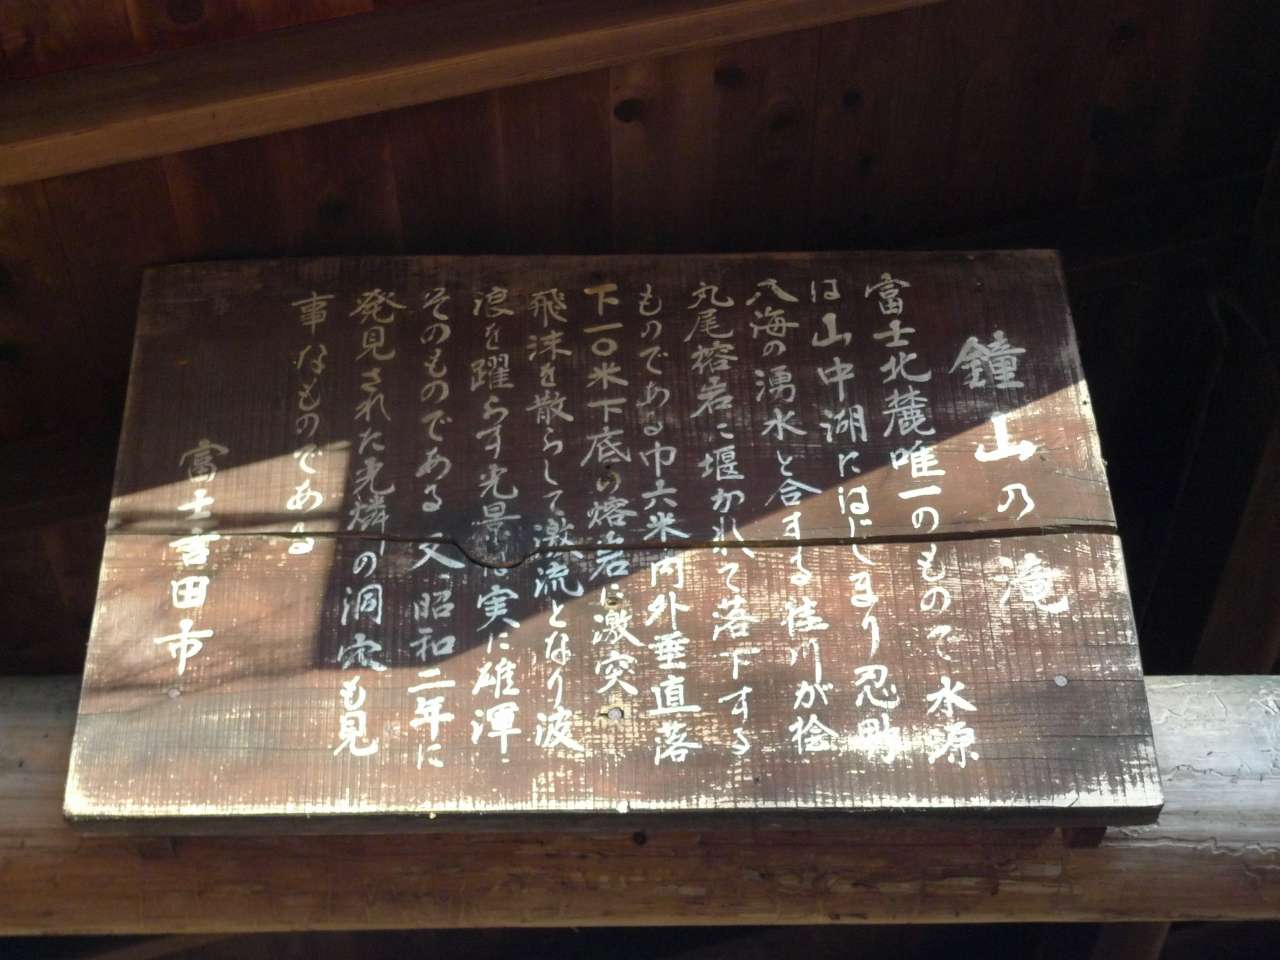 鐘山の滝
富士北麓唯一のもので水源
は山中湖にはじまり忍野
八海の湧水と合する桂川が檜
丸尾熔岩に堰かれて落下する
ものである巾六米内外垂直落
下一〇米下底の熔岩に激突し
飛沫を散らして激流となり波
浪を躍らす光景は実に雄渾
そのものである又、昭和二年に
発見された光燐の洞穴も見
事なものである
富士吉田市